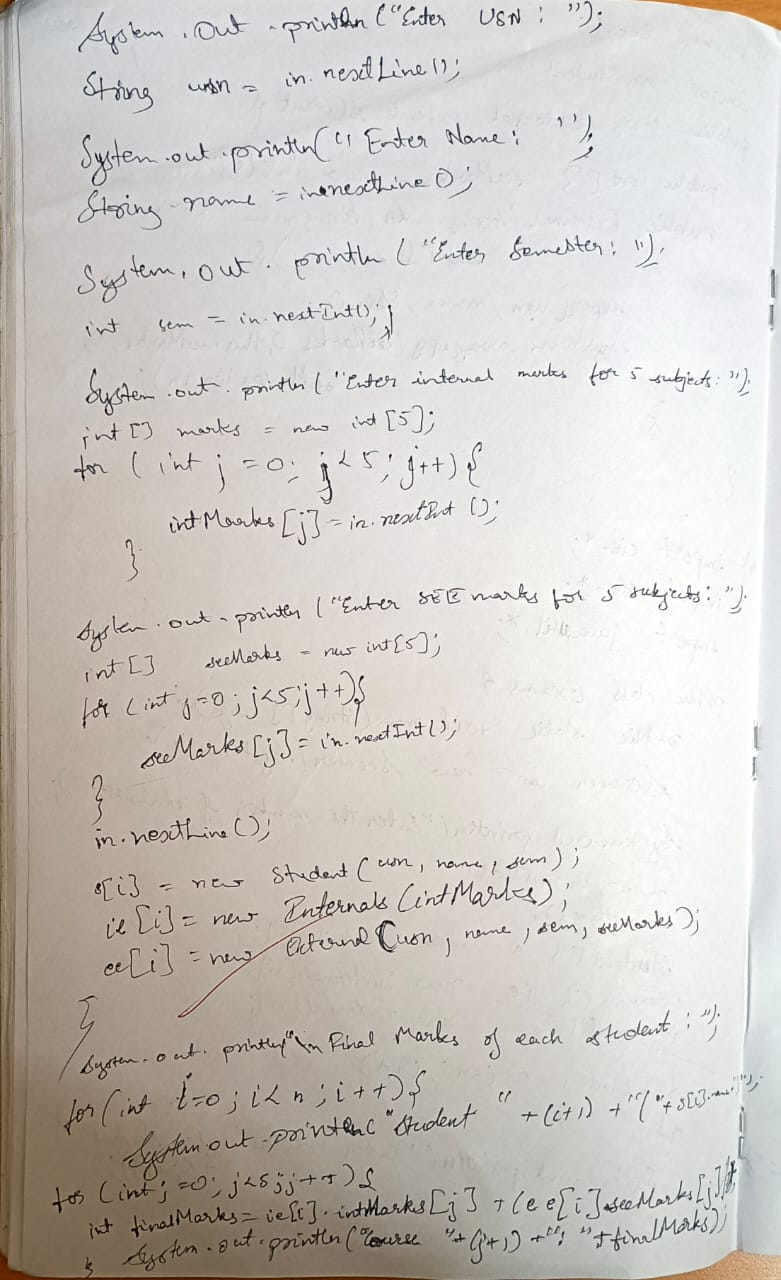 System.Out.println("Enter USN : ");
String usn = in.nextLine();
System.out.println("Enter Name: ");
String name = in.nextLine();
System.out.println("Enter Semester: ");
int sem = in.nextInt();
System.out.println("Enter internal marks for 5 subjects: ");
int[] marks = new int[5];
for (int j = 0; j < 5; j++) {
intMarks[j] = in.nextInt();
}
System.out.println("Enter SEE marks for 5 subjects: ");
int[] seeMarks = new int[5];
for (int j=0; j<5; j++){
seeMarks[j] = in.nextInt();
}
in.nextLine();
s[i] = new Student(usn, name, sem);
ie[i] = new Internals(intMarks);
ee[i] = new External(usn, name, sem, seeMarks);
}
System.out.println("\n Final Marks of each student : ");
for(int i=0; i<n; i++){
System.out.println("Student " + (i+1) + "(" + s[i].name
for (int j=0; j<5; j++) {
int finalMarks = ie[i].intMarks[j] + (ee[i].seeMarks[j]
} System.out.println("Course "+(j+1)+": "+finalMarks);